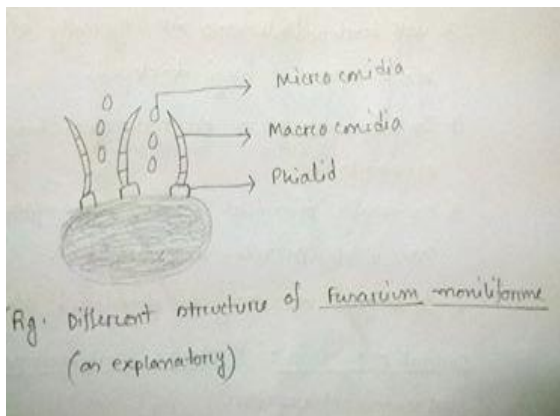 Micro conidia
Macro conidia
Phialid
Fig. Different structure of Fusarium moniliforme
(an explanatory)